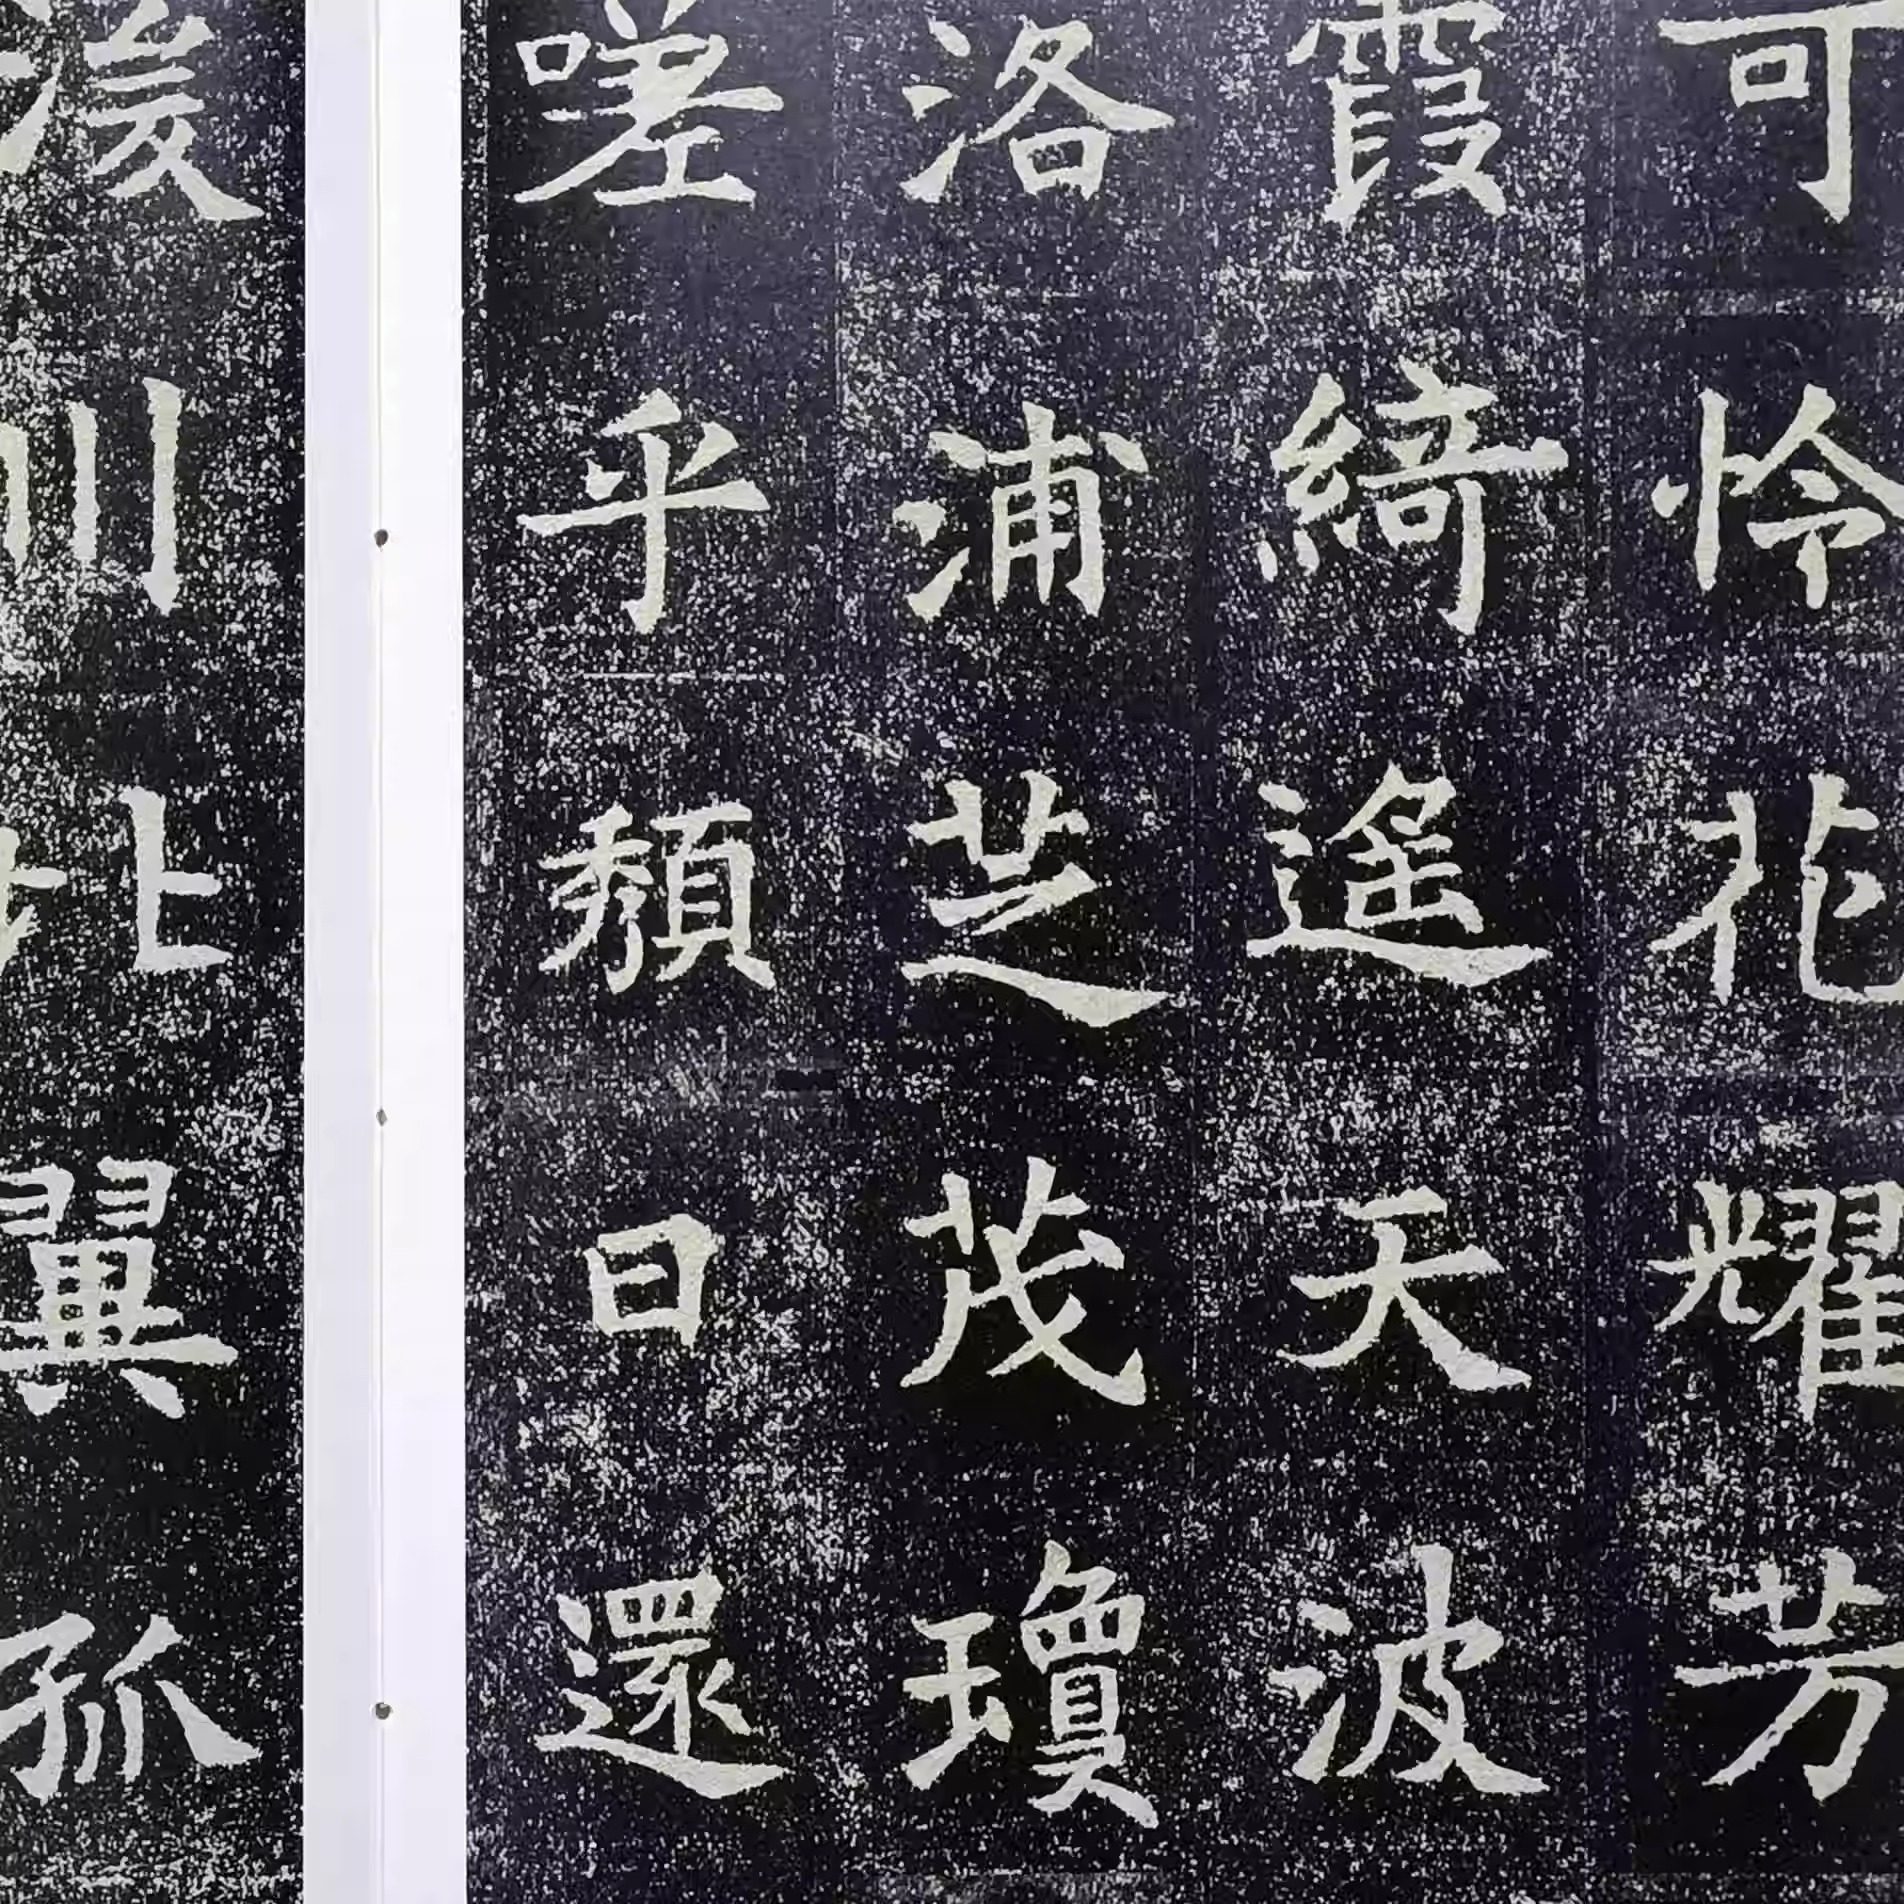 可怜花耀芳
霞綺遙天波
洛浦芝茂瓊
嗟乎頹日還
川北翼孤